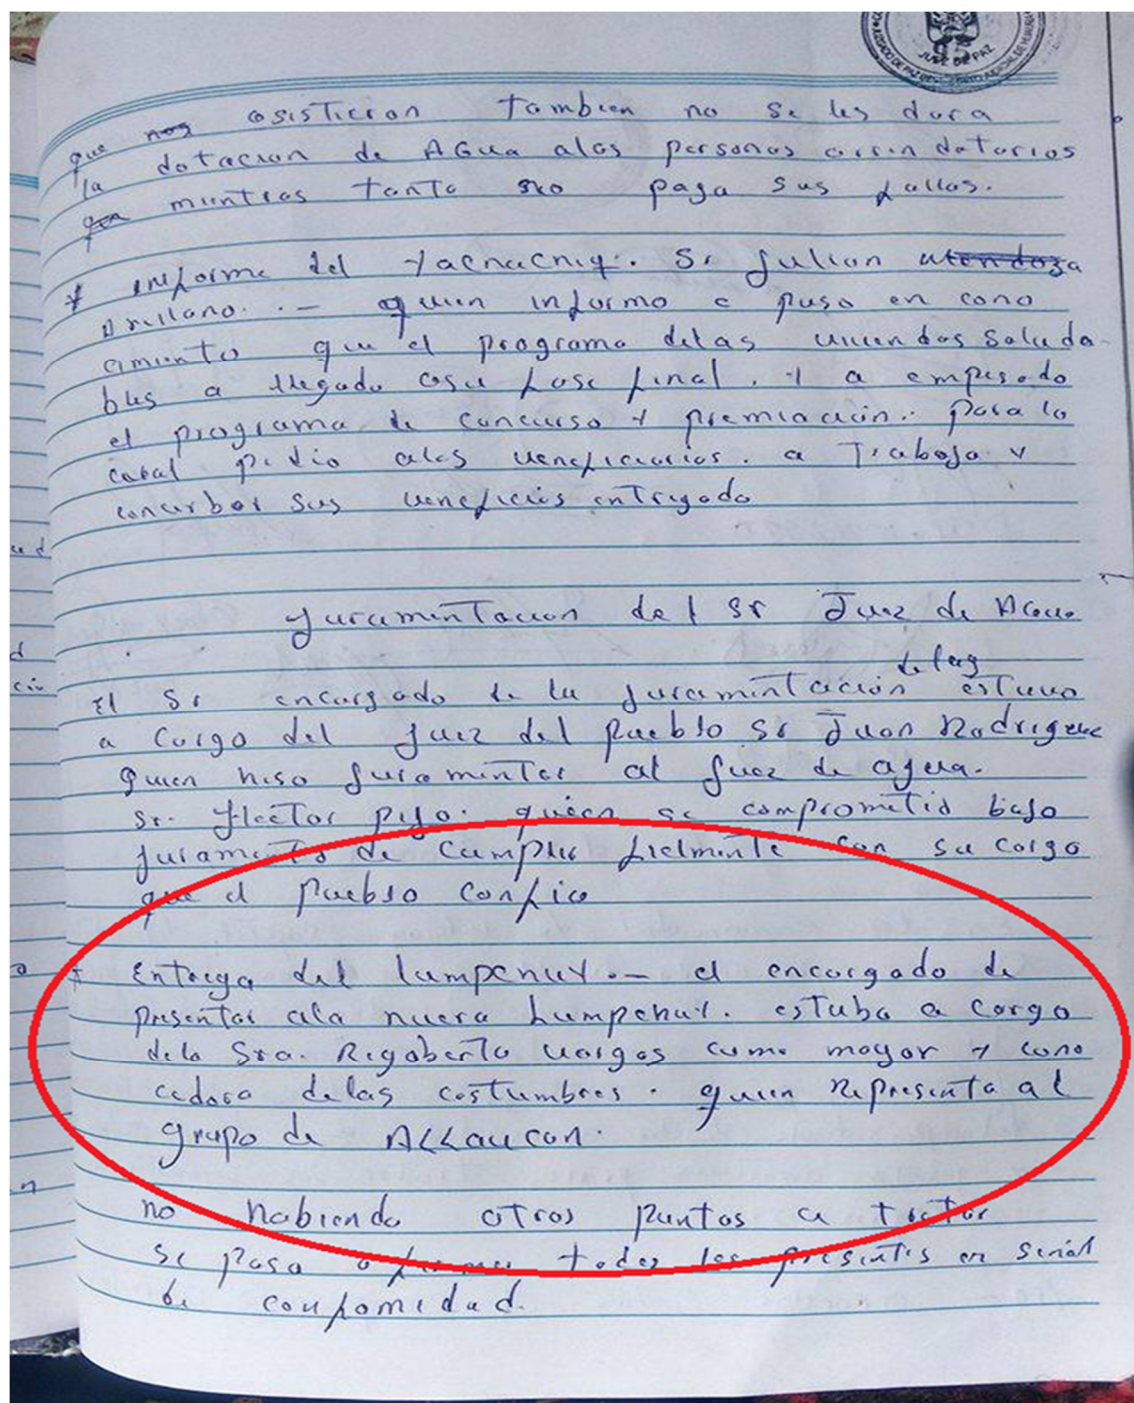 JUEZ DE PAZ
que nos asistieron tambien no se les dara
la dotacion de AGua alas personas arrindatarios
mientras tanto no paga sus fallas.
* informe del yacnacniq. Sr Julian Mendoza
Arellano. - quien informo e puso en cono
cimiento que el programa delas vivendas Saluda-
bles a llegado asu fase final. y a empesado
el programa de concurso y premiación. para lo
caual pidio alos veneficiarios. a Trabaja y
concerbar sus veneficios entregado
juramentacion del Sr Juez de Agua
delag
El Sr encargado de la juramintación estuvo
a Corgo del juez del pueblo Sr Juan Rodrigue
quien hiso juramenter al juez de agua.
Sr. Hector pejo. quien se comprometio bajo
juramento de cumplir fielminte con su corgo
que el pueblo confico
* Entrega del lumpenuy. - el encorgado de
presentar ala nueva Lumpenuy. estuba a Corgo
dela Sra. Rigoberto vargas como mayor y cono
cedora delas costumbres. quien representa al
grupo de ALLAucan.
no habiendo otros puntos a tratar
Se paso a firmar todos los presentes en señal
de conformidad.